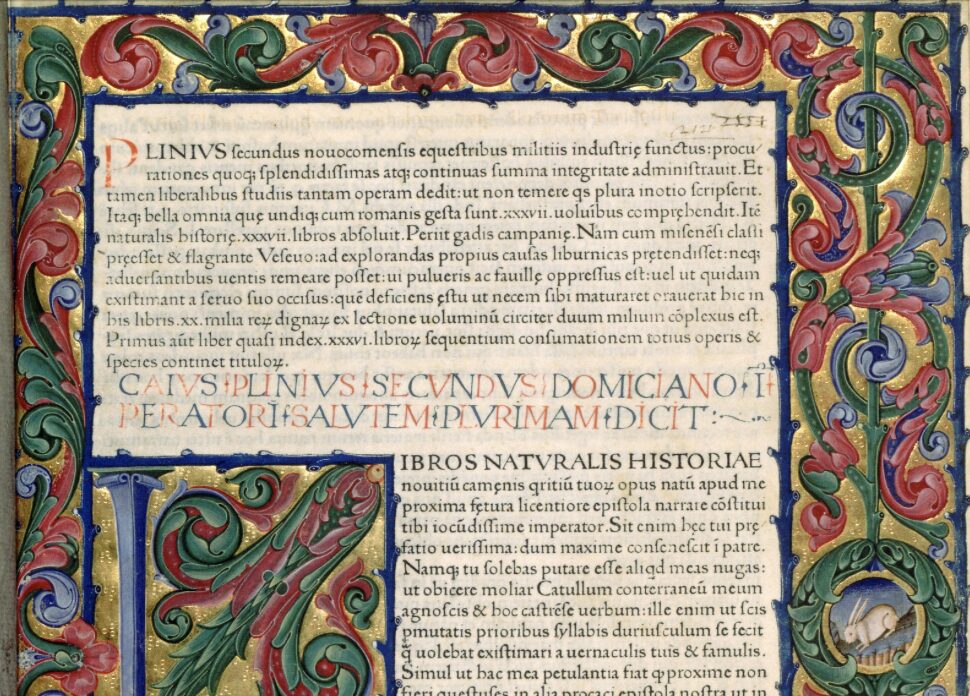 PLINIVS secundus nouocomensis equestribus militiis industrię functus:procu
rationes quoq; splendidissimas atq; continuas summa integritate administrauit. Et
tamen liberalibus studiis tantam operam dedit: ut non temere qs plura inotio scripserit.
Itaq; bella omnia quę undiq; cum romanis gesta sunt .xxxvii. uoluibus compręhendit. Itē
naturalis historię .xxxvii. libros absoluit. Periit gadis campanię. Nam cum misenēsi classi
pręesset & flagrante Veseuo: ad explorandas propius causas liburnicas prętendisset: neq;
aduersantibus uentis remeare posset: ui pulueris ac fauillę oppressus est: uel ut quidam
existimant a seruo suo occisus: quē deficiens ęstu ut necem sibi maturaret orauerat hic in
his libris .xx. milia reꝝ dignaꝝ ex lectione uoluminū circiter duum milium cōplexus est.
Primus aūt liber quasi index .xxxvi. libroꝝ sequentium consumationem totius operis &
species continet tituloꝝ.
CAIVS PLINIVS SECVNDVS DOMICIANO
PERATORI SALVTEM PLVRIMAM DICIT
LIBROS NATVRALIS HISTORIAE
nouitiū camęnis qritiū tuoꝝ opus natū apud me
proxima fętura licentiore epistola narrare cōstitui
tibi iocūdissime imperator. Sit enim hęc tui prę
fatio uerissima: dum maxime consenescit ī patre.
Namq; tu solebas putare esse aliqd meas nugas:
ut obicere moliar Catullum conterraneū meum
agnoscis & hoc castrēse uerbum: ille enim ut scis
pmutatis prioribus syllabis duriusculum se fecit
q̄ uolebat existimari a uernaculis tuis & famulis.
Simul ut hac mea petulantia fiat qproxime non
fieri questuses in alia procaci epistola nostra ut in